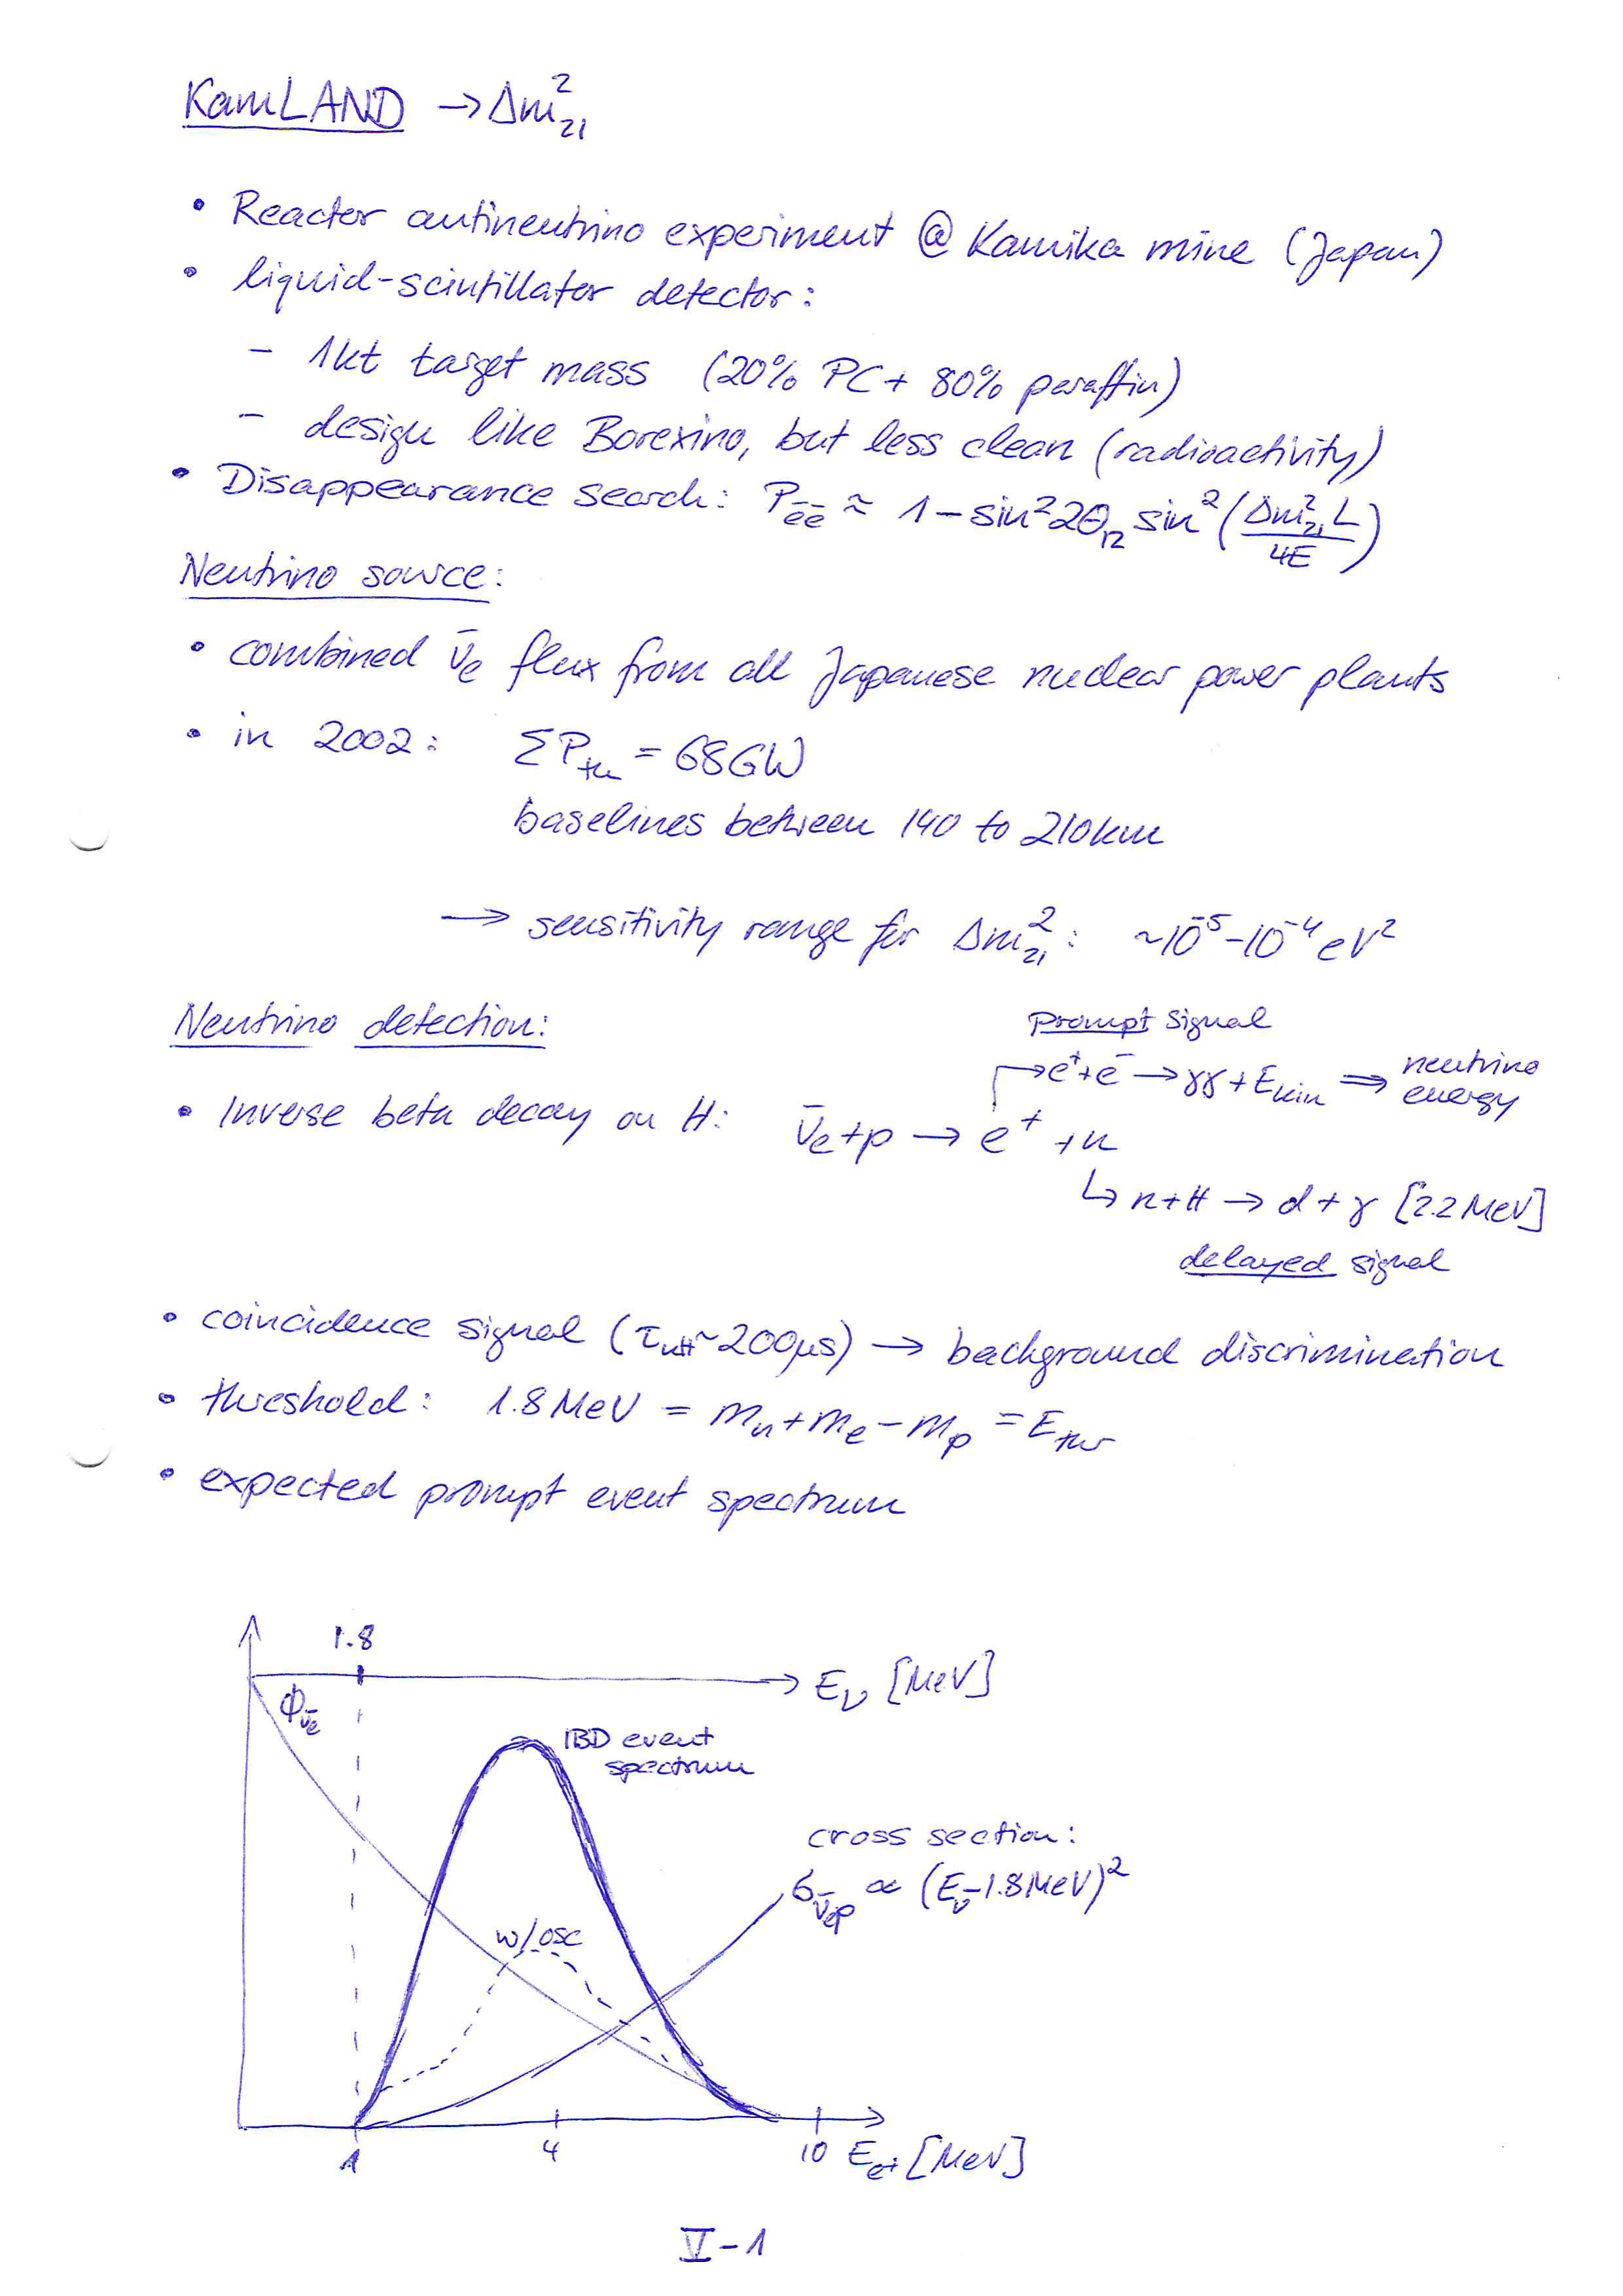 KamLAND → Δm²₂₁
• Reactor antineutrino experiment @ Kamika mine (Japan)
• liquid-scintillator detector:
– 1kt target mass (20% PC + 80% paraffin)
– design like Borexino, but less clean (radioactivity)
• Disappearance search: P_ēē ≈ 1 – sin²2θ₁₂ sin²(Δm²₂₁L / 4E)
Neutrino source:
• combined ν̄e flux from all Japanese nuclear power plants
• in 2002: ΣP_th = 68GW
baselines between 140 to 210km
→ sensitivity range for Δm²₂₁: ~10⁻⁵–10⁻⁴ eV²
Neutrino detection:
prompt signal
↱ e⁺+e⁻ → γγ + E_kin ⇒ neutrino energy
• Inverse beta decay on H: ν̄e + p → e⁺ + n
↳ n+H → d + γ [2.2 MeV]
delayed signal
• coincidence signal (τ_nH ~ 200µs) → background discrimination
• threshold: 1.8 MeV = m_n + m_e – m_p = E_thr
• expected prompt event spectrum
1.8
E_ν [MeV]
ϕ_ν̄e
IBD event
spectrum
cross section:
σ_ν̄ep ∝ (E_ν̄ – 1.8 MeV)²
w/ osc
1 4 10 E_e+ [MeV]
V – 1